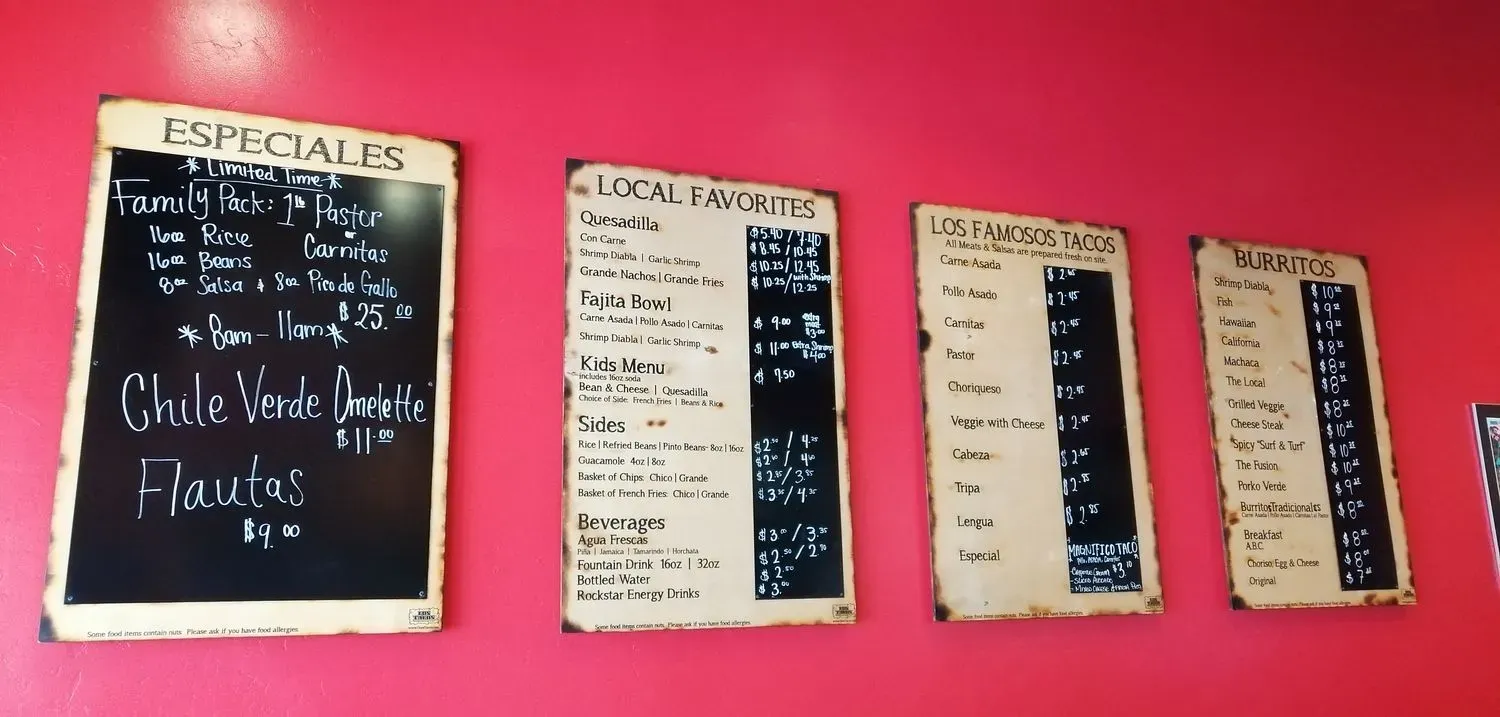 ESPECIALES
* Limited Time *
Family Pack: 1lb Pastor
or
16oz Rice Carnitas
16oz Beans
8oz Salsa & 8oz Pico de Gallo
$25.00
* 8am - 11am *
Chile Verde Omelette
$11.00
Flautas
$9.00
Some food items contain nuts. Please ask if you have food allergies.
LOCAL FAVORITES
Quesadilla $5.40 / 7.40
Con Carne $8.45 / 10.45
Shrimp Diabla | Garlic Shrimp $10.25 / 12.45
Grande Nachos | Grande Fries $10.25 / with Shrimp 12.25
Fajita Bowl
Carne Asada | Pollo Asado | Carnitas $9.00 extra meat $3.00
Shrimp Diabla | Garlic Shrimp $11.00 Extra Shrimp $4.00
Kids Menu $7.50
includes 16oz soda
Bean & Cheese | Quesadilla
Choice of Side: French Fries | Beans & Rice
Sides
Rice | Refried Beans | Pinto Beans- 8oz | 16oz
Guacamole 4oz | 8oz
Basket of Chips: Chico | Grande
Basket of French Fries: Chico | Grande
Beverages
Agua Frescas
Piña | Jamaica | Tamarindo | Horchata
Fountain Drink 16oz | 32oz
Bottled Water
Rockstar Energy Drinks $3.00
Some food items contain nuts. Please ask if you have food allergies.
LOS FAMOSOS TACOS
All Meats & Salsas are prepared fresh on site.
Carne Asada $2.65
Pollo Asado $2.45
Carnitas $2.45
Pastor $2.45
Choriqueso $2.45
Veggie with Cheese $2.45
Cabeza $2.65
Tripa $2.85
Lengua $2.85
Especial MAGNIFICO TACO
$3.10
Some food items contain nuts. Please ask if you have food allergies.
BURRITOS
Shrimp Diabla $10
Fish $9
Hawaiian $9
California $8
Machaca $8
The Local $8
Grilled Veggie $8
Cheese Steak $10
Spicy "Surf & Turf" $10
The Fusion $10
Porko Verde $9
Burritos Tradicionales $8
Carne Asada | Pollo Asado | Carnitas | al Pastor
Breakfast
A.B.C. $8
Choriso Egg & Cheese $8
Original $7
Some food items contain nuts. Please ask if you have food allergies.